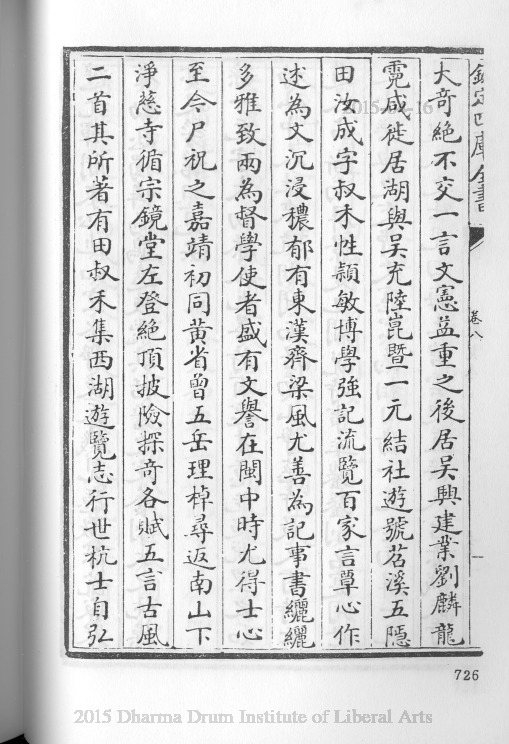 欽定四庫全書
卷八
一
大奇絶不交一言文憲益重之後居吳興建業劉麟龍
霓咸徙居湖與吳充陸崑暨一元結社遊號苕溪五隱
田汝成字叔禾性頴敏博學強記流覽百家言覃心作
述為文沉浸穠郁有東漢齊梁風尤善為記事書纚纚
多雅致兩為督學使者盛有文譽在閩中時尤得士心
至今尸祝之嘉靖初同黄省曾五岳理棹尋返南山下
淨慈寺循宗鏡堂左登絶頂披險探奇各賦五言古風
二首其所著有田叔禾集西湖遊覽志行世杭士自弘
726
2015 Dharma Drum Institute of Liberal Arts